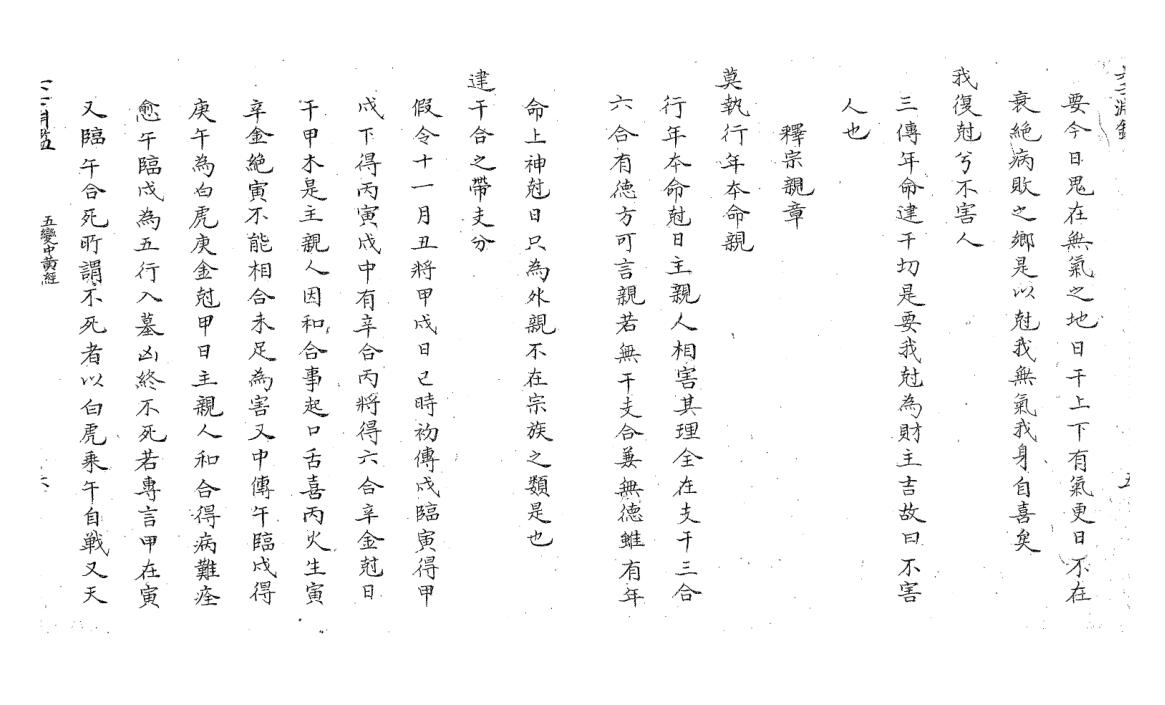 要今日鬼在無氣之地日干上下有氣更日不在
衰絕病敗之鄉是以尅我無氣我身自喜矣
我復尅兮不害人
三傳年命建干切是要我尅為財主吉故曰不害
人也
釋宗親章
莫執行年本命親
行年本命尅日主親人相害其理全在支干三合
六合有德方可言親若無干支合兼無德雖有年
命上神尅日只為外親不在宗族之類是也
建干合之帶支分
假令十一月丑將甲戌日巳時初傳戌臨寅得甲
戌下得丙寅戌中有辛合丙將得六合辛金尅日
干甲木是主親人因和合事起口舌喜丙火生寅
辛金絕寅不能相合未足為害又中傳午臨戌得
庚午為白虎庚金尅甲日主親人和合得病難痊
愈午臨戌為五行入墓凶終不死若專言甲在寅
又臨午合死所謂不死者以白虎乘午自戰又天
五變中黃經